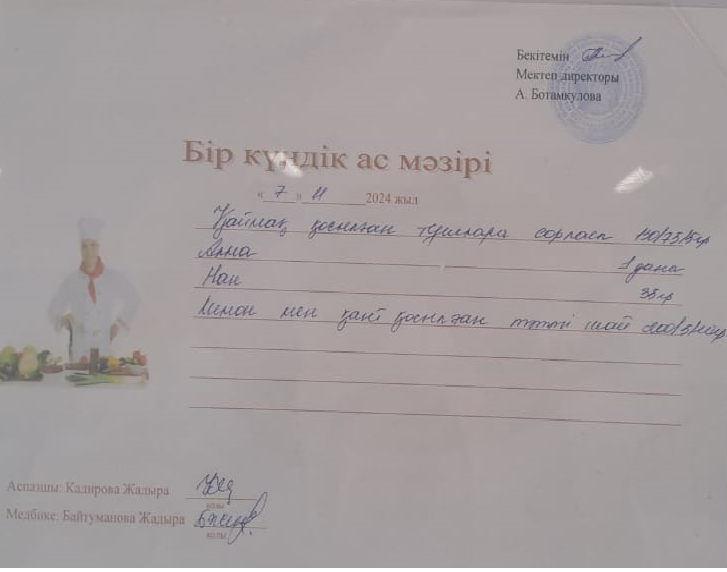 Бекітемін
Мектеп директоры
А. Ботамкулова
Бір күндік ас мәзірі
« 7 » 11 2024 жыл
Қаймақ қосылған тұшпара сорпасы
Алма 1 дана
Нан 35 гр
Лимон мен қант қосылған тәтті шай
Аспазшы: Кадирова Жадыра
қолы
Медбике: Байтуманова Жадыра
қолы